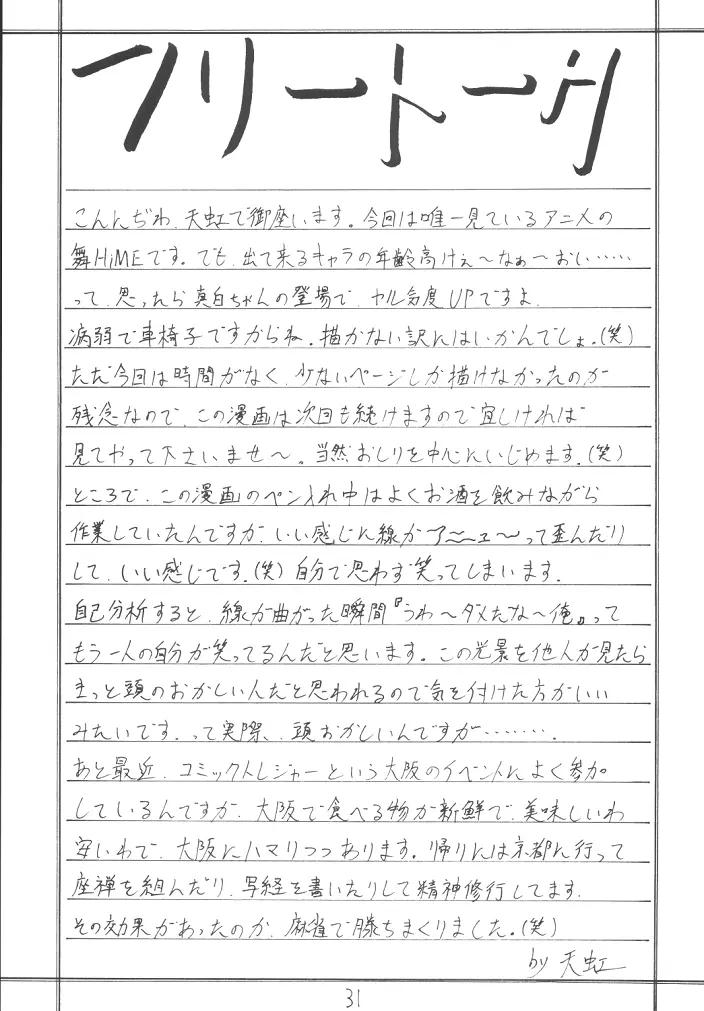 フリートーク
こんんぢわ、天虹で御座います。今回は唯一見ているアニメの
舞HiMEです。でも、出て来るキャラの年齢高けぇ〜なぁ〜おい……
って、思ったら真白ちゃんの登場で、ヤル気度UPですよ。
病弱で車椅子ですからね。描かない訳にはいかんでしょ。(笑)
ただ今回は時間がなく、少ないページしか描けなかったのが
残念なので、この漫画は次回も続けますので宜しければ
見てやって下さいませ〜。当然おしりを中心にいじめます。(笑)
ところで、この漫画のペン入れ中はよくお酒を飲みながら
作業していたんですが、いい感じに線がア〜〜ュ〜って歪んだり
して、いい感じです。(笑)自分で思わず笑ってしまいます。
自己分析すると、線が曲がった瞬間『うわ〜ダメだな〜俺』って
もう一人の自分が笑ってるんだと思います。この光景を他人が見たら
きっと頭のおかしい人だと思われるので気を付けた方がいい
みたいです。って実際、頭おかしいんですが………。
あと最近、コミックトレジャーという大阪のイベントによく参加
しているんですが、大阪で食べる物が新鮮で、美味しいわ
安いわで、大阪にハマりつつあります。帰りには京都に行って
座禅を組んだり、写経を書いたりして精神修行してます。
その効果があったのか、麻雀で勝ちまくりました。(笑)
by 天虹
31